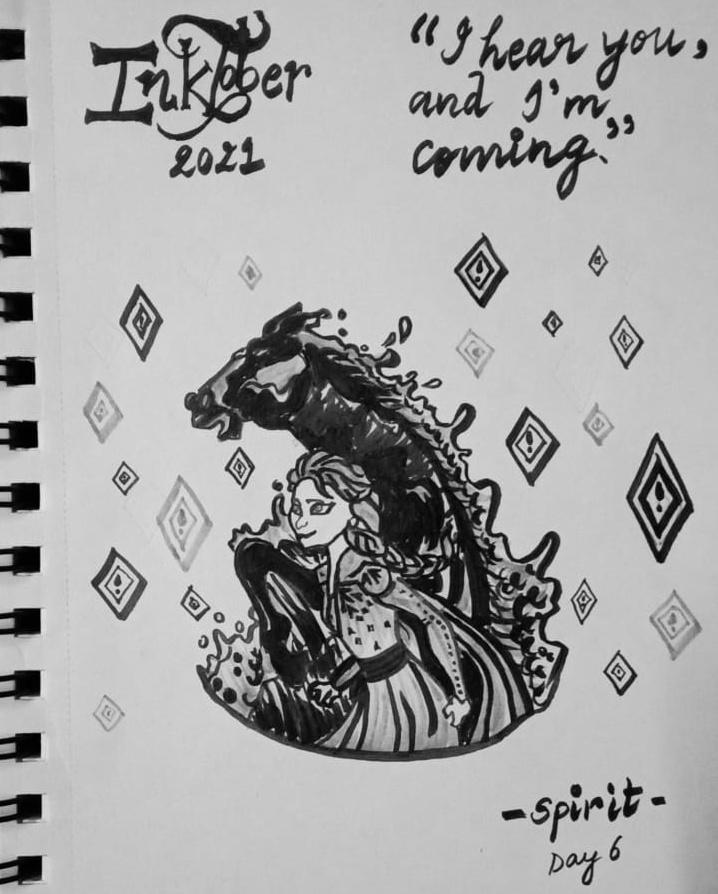 InkTober
2021
“I hear you,
and I'm
coming.”
-spirit-
Day 6